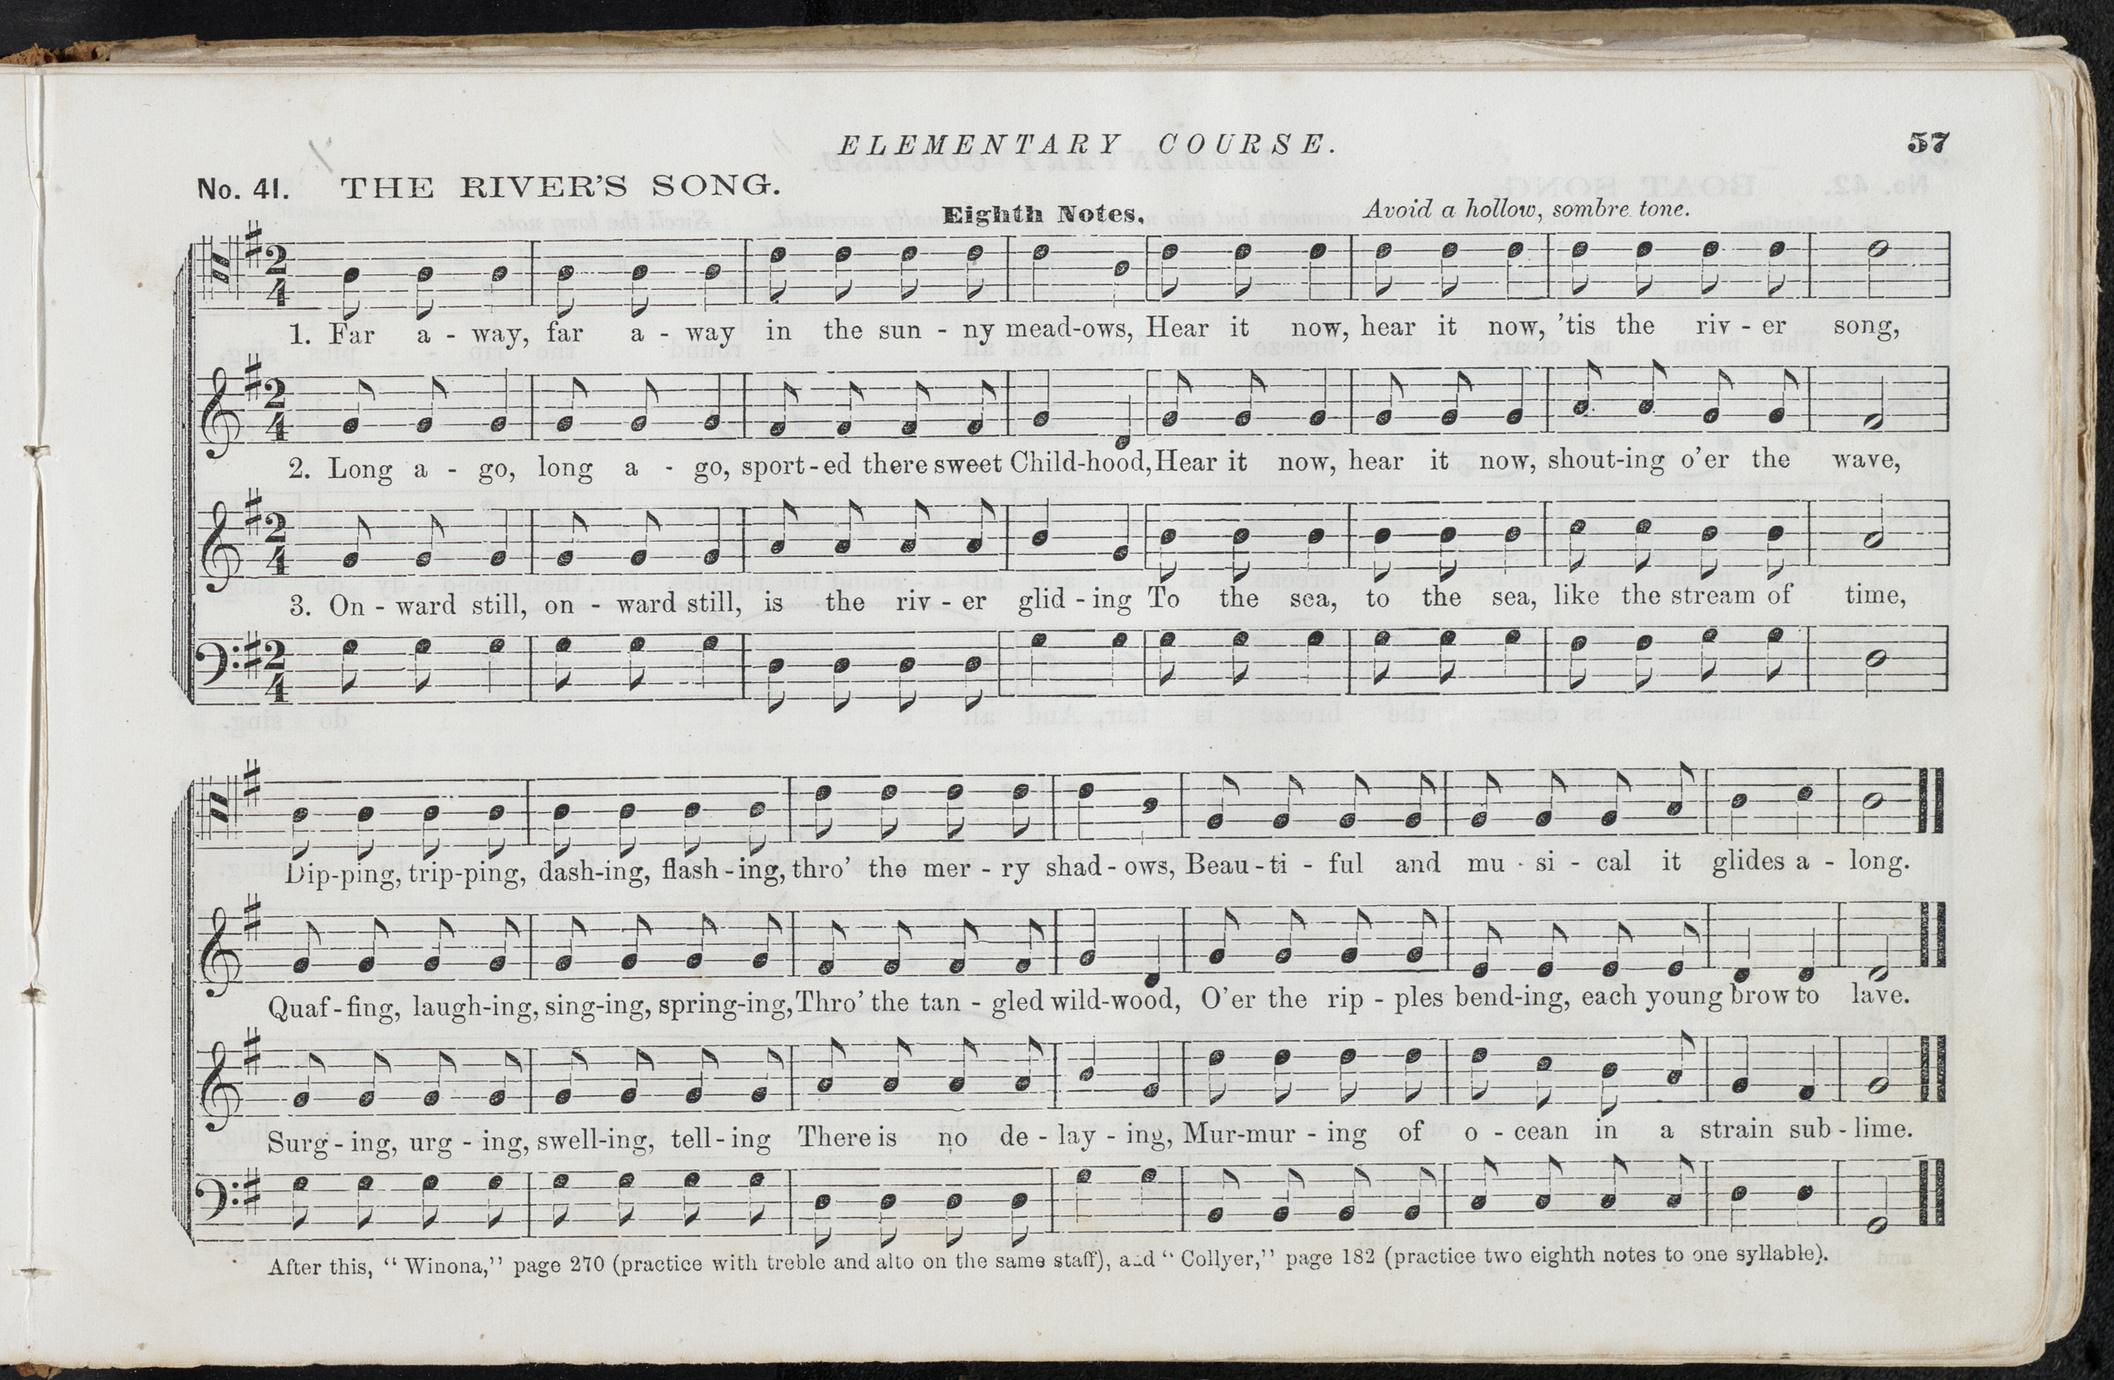 ELEMENTARY COURSE. 57
No. 41. THE RIVER'S SONG.
Eighth Notes. Avoid a hollow, sombre tone.
1. Far a - way, far a - way in the sun - ny mead-ows, Hear it now, hear it now, 'tis the riv - er song,
2. Long a - go, long a - go, sport-ed there sweet Child-hood, Hear it now, hear it now, shout-ing o'er the wave,
3. On - ward still, on - ward still, is the riv - er glid - ing To the sea, to the sea, like the stream of time,
Dip-ping, trip-ping, dash-ing, flash-ing, thro' the mer - ry shad - ows, Beau - ti - ful and mu - si - cal it glides a - long.
Quaf-fing, laugh-ing, sing-ing, spring-ing, Thro' the tan - gled wild-wood, O'er the rip - ples bend-ing, each young brow to lave.
Surg - ing, urg - ing, swell-ing, tell - ing There is no de - lay - ing, Mur-mur - ing of o - cean in a strain sub - lime.
After this, "Winona," page 270 (practice with treble and alto on the same staff), and "Collyer," page 182 (practice two eighth notes to one syllable).